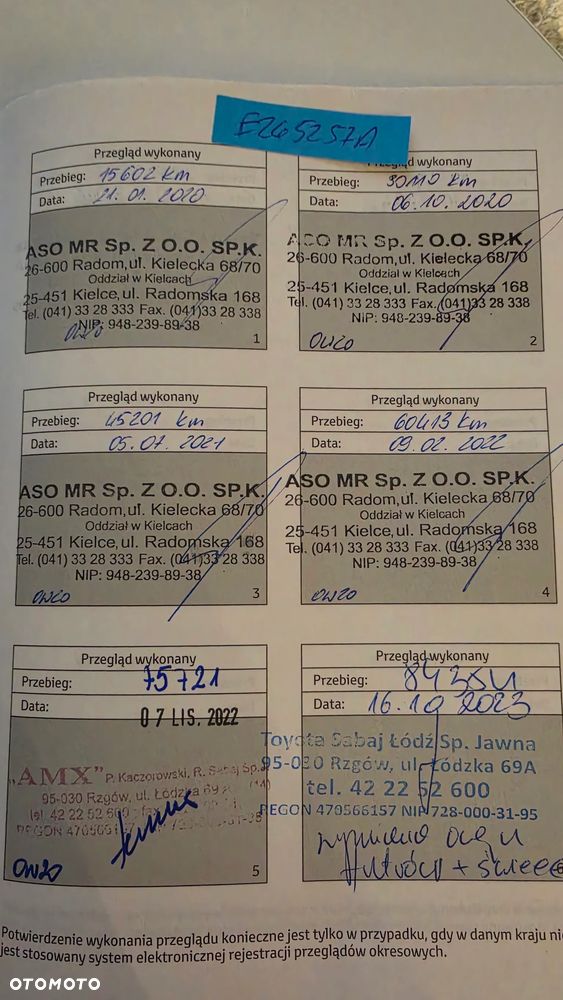 E265257A
Przegląd wykonany
Przebieg: 15602 km
Data: 21.01.2020
ASO MR Sp. Z O.O. SP.K.
26-600 Radom, ul. Kielecka 68/70
Oddział w Kielcach
25-451 Kielce, ul. Radomska 168
Tel. (041) 33 28 333 Fax. (041)33 28 338
NIP: 948-239-89-38
0W20
1
Przegląd wykonany
Przebieg: 30110 km
Data: 06.10.2020
ASO MR Sp. Z O.O. SP.K.
26-600 Radom, ul. Kielecka 68/70
Oddział w Kielcach
25-451 Kielce, ul. Radomska 168
Tel. (041) 33 28 333 Fax. (041)33 28 338
NIP: 948-239-89-38
0W20
2
Przegląd wykonany
Przebieg: 45201 km
Data: 05.07.2021
ASO MR Sp. Z O.O. SP.K.
26-600 Radom, ul. Kielecka 68/70
Oddział w Kielcach
25-451 Kielce, ul. Radomska 168
Tel. (041) 33 28 333 Fax. (041)33 28 338
NIP: 948-239-89-38
0W20
3
Przegląd wykonany
Przebieg: 60413 km
Data: 09.02.2022
ASO MR Sp. Z O.O. SP.K.
26-600 Radom, ul. Kielecka 68/70
Oddział w Kielcach
25-451 Kielce, ul. Radomska 168
Tel. (041) 33 28 333 Fax. (041)33 28 338
NIP: 948-239-89-38
0W20
4
Przegląd wykonany
Przebieg: 75721
Data: 07 LIS. 2022
„AMX" P. Kaczorowski, R. Sabaj Sp.J.
95-030 Rzgów, ul. Łódzka 69
tel. 42 22 52 600
REGON 470566157
0W20
5
Przegląd wykonany
Przebieg:
Data: 16.10.2023
Toyota Sabaj Łódź Sp. Jawna
95-030 Rzgów, ul. Łódzka 69A
tel. 42 22 52 600
REGON 470566157 NIP 728-000-31-95
Potwierdzenie wykonania przeglądu konieczne jest tylko w przypadku, gdy w danym kraju
jest stosowany system elektronicznej rejestracji przeglądów okresowych.
OTOMOTO